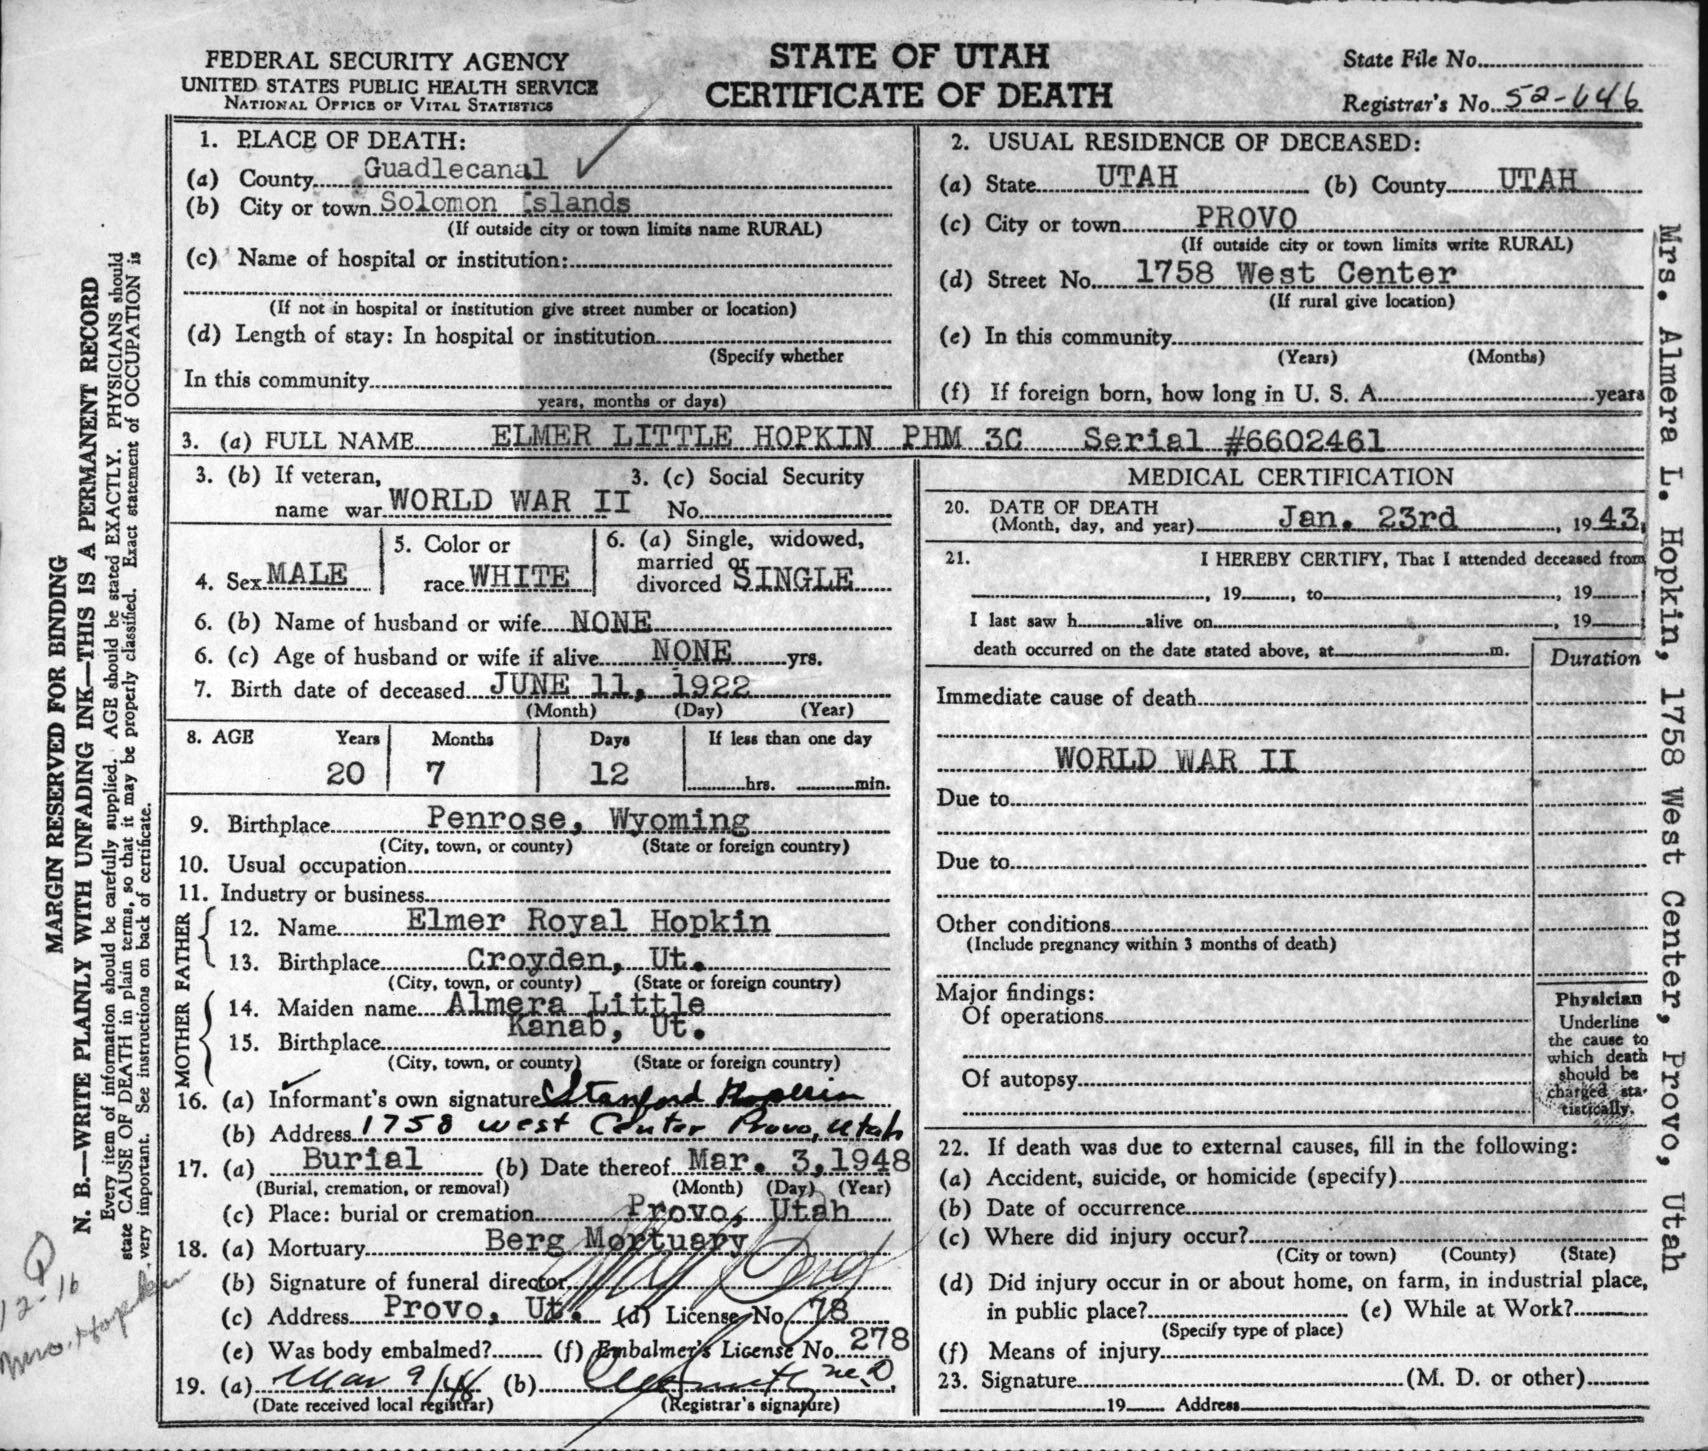 FEDERAL SECURITY AGENCY
UNITED STATES PUBLIC HEALTH SERVICE
NATIONAL OFFICE OF VITAL STATISTICS
STATE OF UTAH
CERTIFICATE OF DEATH
State File No.
Registrar's No. 52-646
1. PLACE OF DEATH:
(a) County Guadlecanal ✓
(b) City or town Solomon Islands
(If outside city or town limits name RURAL)
(c) Name of hospital or institution:
(If not in hospital or institution give street number or location)
(d) Length of stay: In hospital or institution
(Specify whether
In this community
years, months or days)
2. USUAL RESIDENCE OF DECEASED:
(a) State UTAH (b) County UTAH
(c) City or town PROVO
(If outside city or town limits write RURAL)
(d) Street No. 1758 West Center
(If rural give location)
(e) In this community
(Years) (Months)
(f) If foreign born, how long in U. S. A. years
3. (a) FULL NAME ELMER LITTLE HOPKIN PHM 3C Serial #6602461
3. (b) If veteran, 3. (c) Social Security
name war WORLD WAR II No.
4. Sex MALE
5. Color or
race WHITE
6. (a) Single, widowed,
married or
divorced SINGLE
6. (b) Name of husband or wife NONE
6. (c) Age of husband or wife if alive NONE yrs.
7. Birth date of deceased JUNE 11, 1922
(Month) (Day) (Year)
8. AGE Years Months Days If less than one day
20 7 12 hrs. min.
9. Birthplace Penrose, Wyoming
(City, town, or county) (State or foreign country)
10. Usual occupation
11. Industry or business
FATHER
12. Name Elmer Royal Hopkin
13. Birthplace Croyden, Ut.
(City, town, or county) (State or foreign country)
MOTHER
14. Maiden name Almera Little
15. Birthplace Kanab, Ut.
(City, town, or county) (State or foreign country)
16. (a) Informant's own signature Stanford Hopkin
(b) Address 1758 west Center Provo, Utah
17. (a) Burial (b) Date thereof Mar. 3, 1948
(Burial, cremation, or removal) (Month) (Day) (Year)
(c) Place: burial or cremation Provo, Utah
18. (a) Mortuary Berg Mortuary
(b) Signature of funeral director
(c) Address Provo, Ut. (d) License No. 78
(e) Was body embalmed? (f) Embalmer's License No. 278
19. (a) Mar 9/48 (b)
(Date received local registrar) (Registrar's signature)
MEDICAL CERTIFICATION
20. DATE OF DEATH
(Month, day, and year) Jan. 23rd, 1943,
21. I HEREBY CERTIFY, That I attended deceased from
, 19 , to , 19
I last saw h alive on , 19
death occurred on the date stated above, at m.
Duration
Immediate cause of death
WORLD WAR II
Due to
Due to
Other conditions
(Include pregnancy within 3 months of death)
Major findings:
Of operations
Of autopsy
Physician
Underline
the cause to
which death
should be
charged sta-
tistically.
22. If death was due to external causes, fill in the following:
(a) Accident, suicide, or homicide (specify)
(b) Date of occurrence
(c) Where did injury occur?
(City or town) (County) (State)
(d) Did injury occur in or about home, on farm, in industrial place,
in public place? (e) While at Work?
(Specify type of place)
(f) Means of injury
23. Signature (M. D. or other)
19 Address
MARGIN RESERVED FOR BINDING
N. B.—WRITE PLAINLY WITH UNFADING INK—THIS IS A PERMANENT RECORD
Every item of information should be carefully supplied. AGE should be stated EXACTLY. PHYSICIANS should
state CAUSE OF DEATH in plain terms, so that it may be properly classified. Exact statement of OCCUPATION is
very important. See instructions on back of certificate.
12-16
Mrs. Hopkin
Mrs. Almera L. Hopkin, 1758 West Center, Provo, Utah